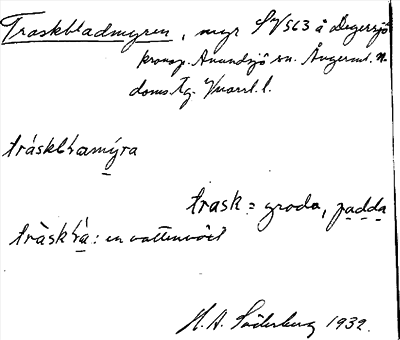 Traskbladmyren, myr SV 563 å Degersjö
kronop. Anundsjö sn. Ångerml. n.
doms tg. Vnorrl. l.
tráskblamýra
trask = groda, padda
tràskblá: en vattenväxt
H. A. Söderberg 1932.